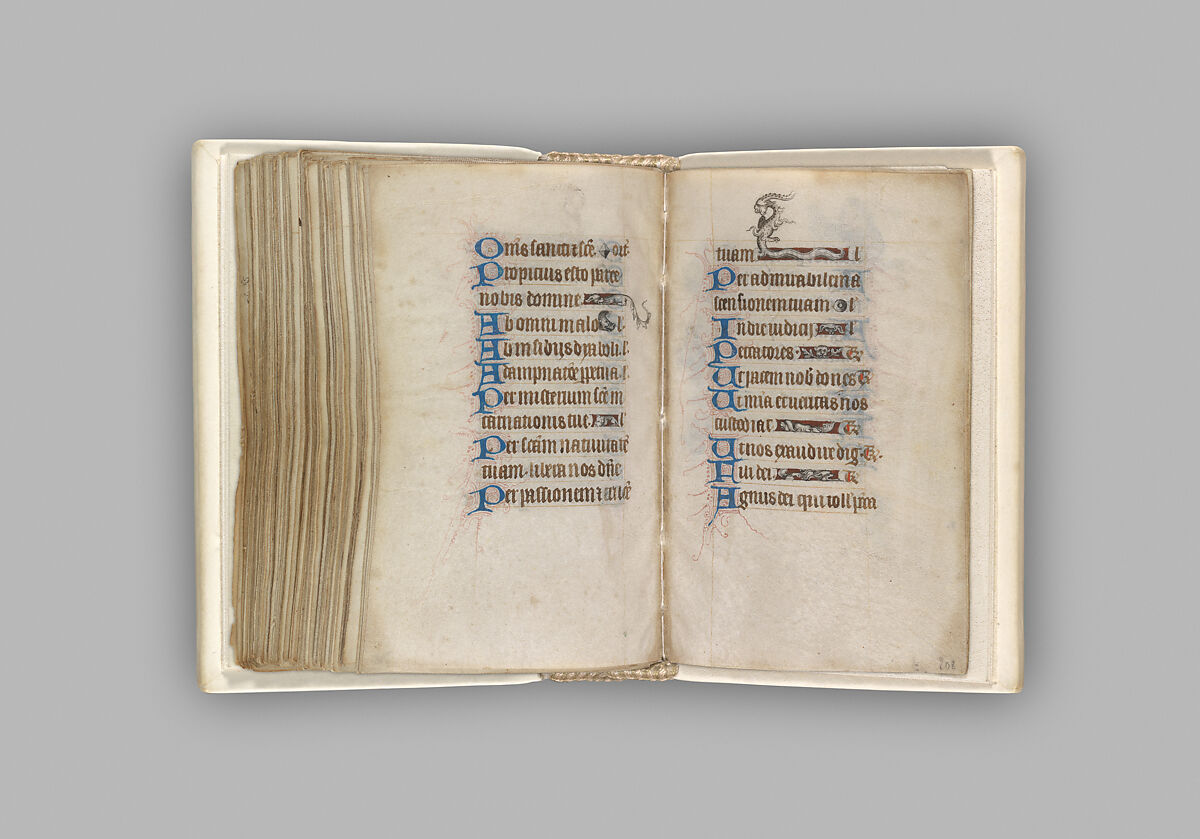 Om̄s sancti ⁊ sc̄e or̄
Propicius esto parce
nobis domine
Ab omni malo l̓
Ab insidijs dyaboli l̓
A dampnatōe ppetua l̓
Per misterium sc̄e in
carnationis tue l̓
Per sc̄am natiuitatē
tuam libera nos dn̄e
Per passionem ⁊ crucē
tuam l
Per admirabilem a
scensionem tuam l̓
In die iudicij l
Peccatores
Ut pacem nob̓ dones
Ut mīa et ueritas nos
custodiat
Ut nos exaudire dig̓
Fili dei
Agnus dei qui toll̓ pc̄ca
208